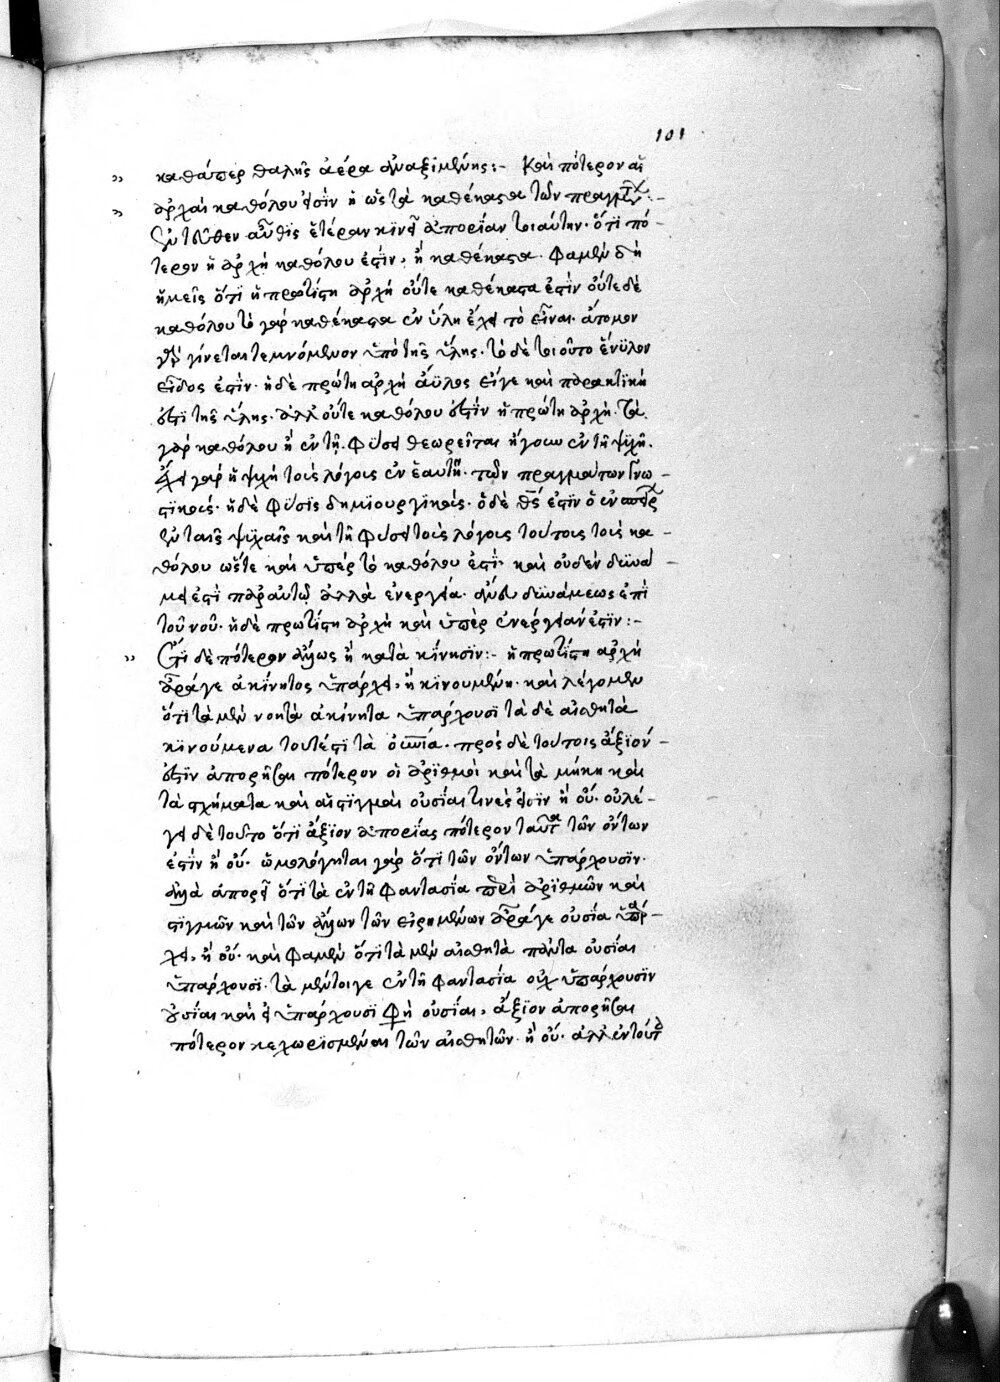 101
καθάπερ θαλῆς ἀέρα ἀναξιμένης:- Καὶ πότερον αἱ
ἀρχαὶ καθόλου εἰσὶν ἢ ὡς τὰ καθέκαστα τῶν πραγμάτων:-
ἐντεῦθεν αὖθις ἑτέραν κινεῖ ἀπορίαν τοιαύτην. ὅτι πό-
τερον ἡ ἀρχὴ καθόλου ἐστὶν, ἢ καθέκαστα. φαμὲν δὴ
ἡμεῖς ὅτι ἡ πρωτίστη ἀρχὴ οὔτε καθέκαστα ἐστὶν οὔτε δὲ
καθόλου τὸ γὰρ καθέκαστα ἐν ὕλη ἔχει τὸ εἶναι. ἄτομον
γὰρ γίνεται τεμνόμενον ὑπὸ τῆς ὕλης. τὸ δὲ τοιοῦτο ἔνϋλον
εἶδος ἐστίν. ἡ δὲ πρώτη ἀρχὴ ἄϋλος εἴγε καὶ παρακτικὴ
ἐστὶ τῆς ὕλης. ἀλλ' οὔτε καθόλου ἐστὶν ἡ πρώτη ἀρχή. τὰ
γὰρ καθόλου ἢ ἐν τῆ φύσει θεωρεῖται ἤγουν ἐν τῆ ψυχῆ.
ἔχει γὰρ ἡ ψυχὴ τοὺς λόγους ἐν ἑαυτῆ τῶν πραγμάτων γνω-
στικούς. ἡ δὲ φύσις δημιουργικούς. ὁ δὲ θς ἐστὶν ὁ ἐνσπείρας
ἐν ταῖς ψυχαῖς καὶ τῆ φύσει τοὺς λόγους τούτους τοὺς κα-
θόλου ὥστε καὶ ὑπὲρ τὸ καθόλου ἐστὶ. καὶ οὐδὲν δυνά-
μει ἐστὶ παρ' αὐτῷ ἀλλὰ ἐνεργεία. ἄνευ δυνάμεως ἐπὶ
τοῦ νοῦ. ἡ δὲ πρωτίστη ἀρχὴ καὶ ὑπὲρ ἐνέργειαν ἐστιν:-
Ἔτι δὲ πότερον ἄλλως ἢ κατὰ κίνησιν:- ἡ πρωτίστη ἀρχὴ
ἆράγε ἀκίνητος ὑπάρχει, ἢ κινουμένη. καὶ λέγομεν
ὅτι τὰ μὲν νοητὰ ἀκίνητα ὑπάρχουσι τὰ δὲ αἰσθητὰ
κινούμενα τουτέστι τὰ οὐνία. πρὸς δὲ τούτοις ἄξιόν-
ἐστιν ἀπορῆσαι πότερον οἱ ἀριθμοὶ καὶ τὰ μήκη καὶ
τὰ σχήματα καὶ αἱ στιγμαὶ οὐσίαι τινές εἰσιν ἢ οὔ. οὐ λέ-
γει δὲ τοῦτο ὅτι ἄξιον ἀπορίας πότερον ταῦτα τῶν ὄντων
ἐστὶν ἢ οὔ. ὡμολόγηται γὰρ ὅτι τῶν ὄντων ὑπάρχουσιν.
ἀλλὰ ἀπορεῖ ὅτι τὰ ἐν τῆ φαντασία περὶ ἀριθμῶν καὶ
στιγμῶν καὶ τῶν ἄλλων τῶν εἰρημένων ἆράγε οὐσία ὑπάρ-
χει, ἢ οὔ. καὶ φαμὲν ὅτι τὰ μὲν αἰσθητὰ πάντα οὐσίαι
ὑπάρχουσι. τὰ μέντοιγε ἐν τῆ φαντασία οὐχ ὑπάρχουσιν
οὐσίαι καὶ εἰ ὑπάρχουσι φησὶ οὐσίαι, ἄξιον ἀπορῆσαι
πότερον κεχωρισμέναι τῶν αἰσθητῶν ἢ οὔ. ἀλλ' ἐν τούτοις